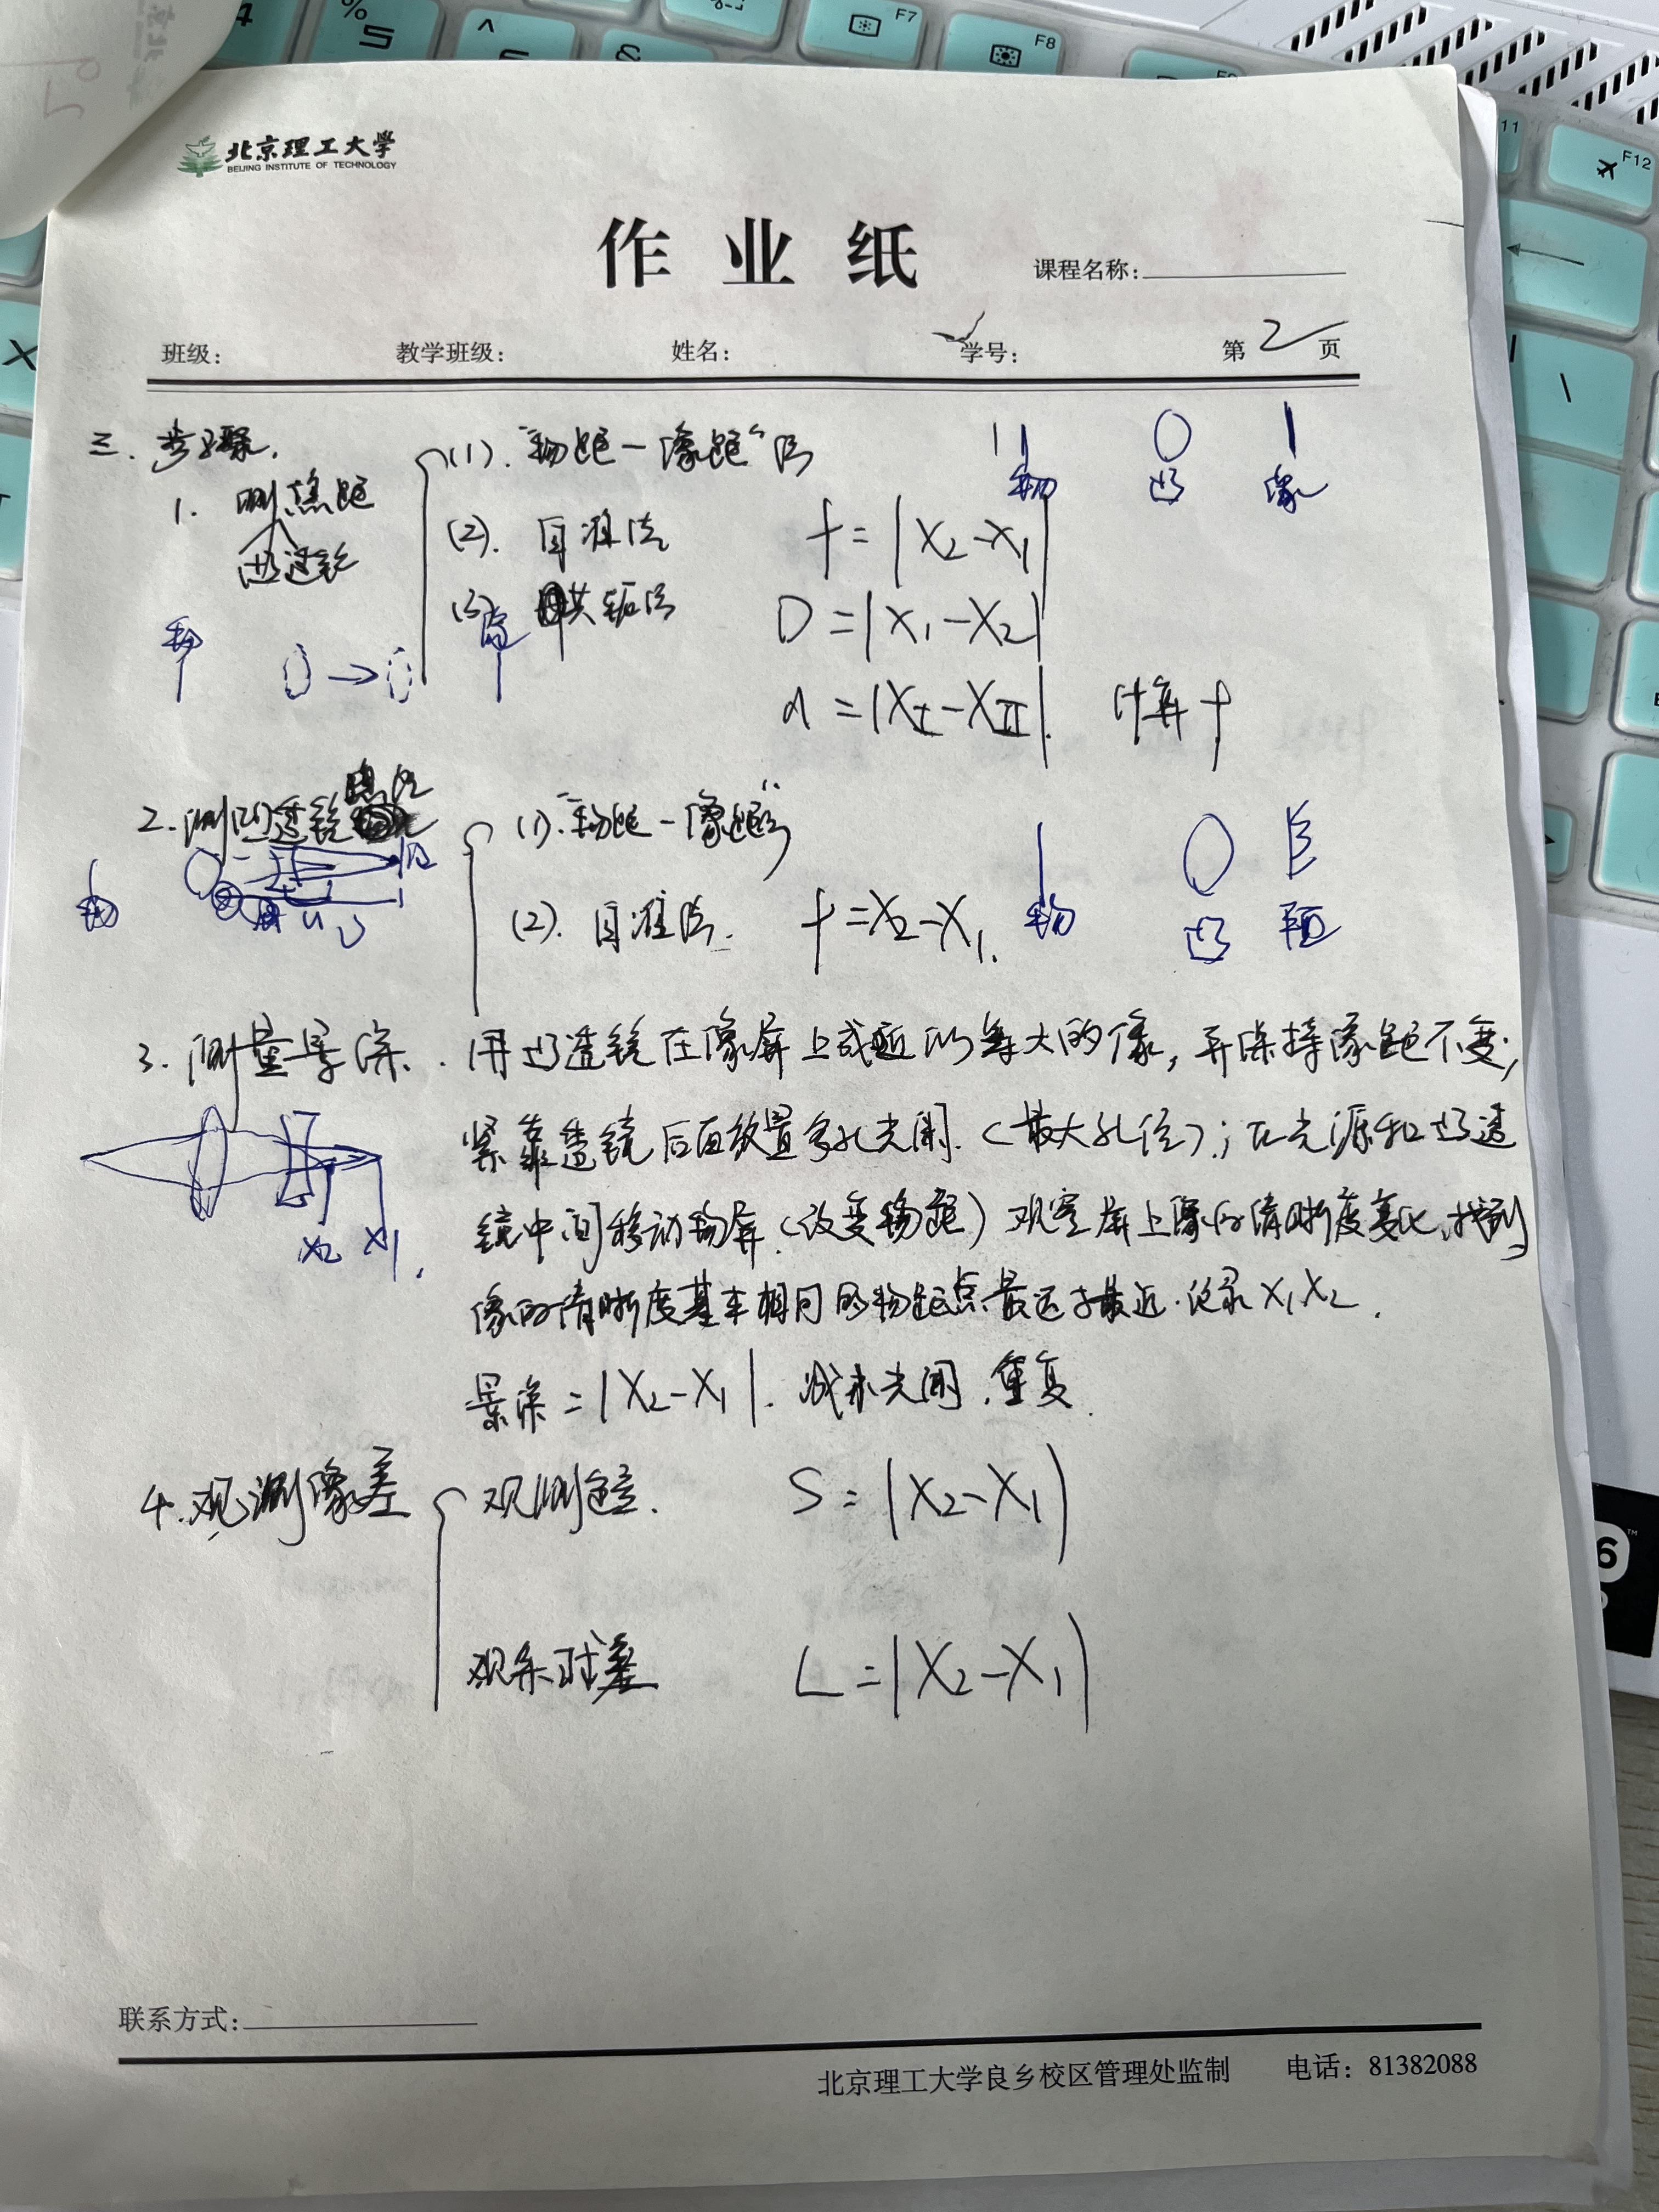 北京理工大学
BEIJING INSTITUTE OF TECHNOLOGY
作业纸
课程名称：
班级： 教学班级： 姓名： 学号： 第 2 页
三、步骤.
1. 测焦距
凸透镜
(1). “物距－像距”法
物 凸 像
(2). 自准法 f=|X₂-X₁|
(3) 共轭法 D=|X₁-X₂|
物
d=|X_I-X_II|. 计算f
2. 测凹透镜
(1). “物距－像距”法
物 u v
(2). 自准法. f=X₂-X₁.
物 凸
3. 测量景深. 用凸透镜在像屏上成近似等大的像, 并保持像距不变;
紧靠透镜后面放置多孔光阑.(最大孔径); 在光源和凸透
镜中间移动物屏.(改变物距) 观察屏上像的清晰度变化,找到
像的清晰度基本相同的物距点最远与最近.记录X₁X₂.
X₂ X₁.
景深=|X₂-X₁|. 减小光阑,重复.
4. 观测像差
观测色差. S=|X₂-X₁|
观察球差 L=|X₂-X₁|
联系方式：
北京理工大学良乡校区管理处监制 电话：81382088
F7
F8
F12
11
5
6